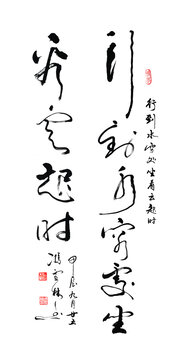 行到水窮處坐
看云起时
行到水穷处坐看云起时
甲辰九月廿五